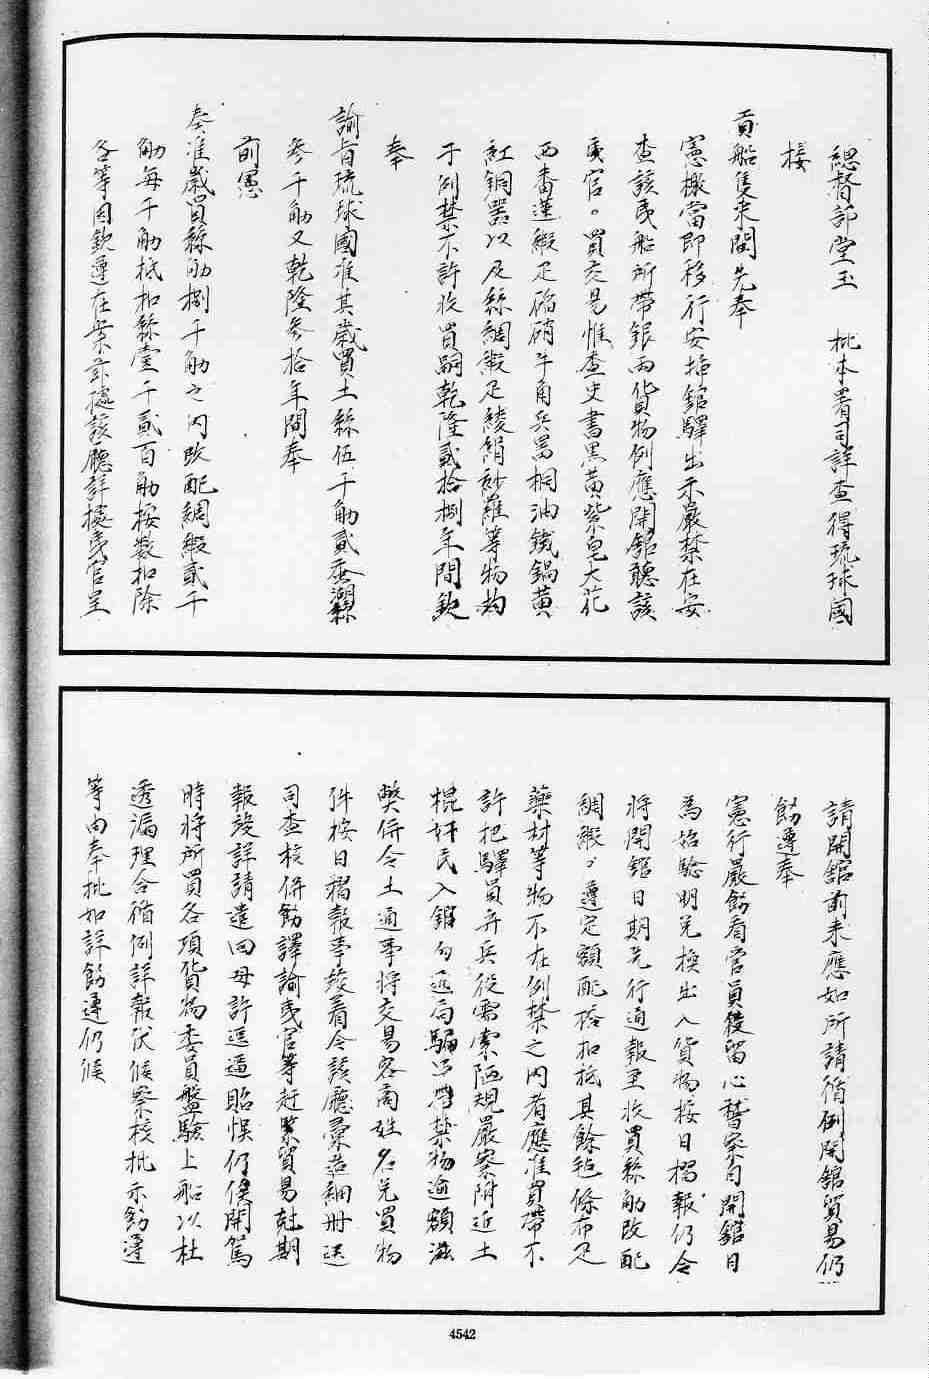 總督部堂玉　批本署司詳查得琉球國
接
貢船隻來閩先奉
憲檄當即移行安揷舘驛出示嚴禁在安
查該夷船所帶銀兩貨物例應開舘聽該
夷官。買交易惟查史書黑黃紫皂大花
西番蓮緞疋焰硝牛角兵噐桐油鐵鍋黃
紅銅噐以及絲綢緞疋綾絹紗羅等物均
于例禁不許收買嗣乾隆貳拾捌年間欽
奉
諭旨琉球國准其歲買土絲伍千觔貳蚕湖絲
叁千觔又乾隆叁拾年間奉
前憲
奏准歲買絲觔捌千觔之內改配綢緞貳千
觔每千觔抵扣絲壹千貳百觔按數扣除
各等因欽遵在案茲據該廳詳據夷官呈
請開舘前來應如所請循例開舘貿易仍
飭遵奉
憲行嚴飭看官員役留心稽察自開舘日
為始驗明兌換出入貨物按日摺報仍令
將開舘日期先行通報至收買絲觔改配
綢緞遵定額配搭扣抵其餘毡條布疋
藥材等物不在例禁之內者應准買帶不
許把驛員弁兵役需索陋規嚴察附近土
棍奸民入舘勾通局騙夾帶禁物逾額滋
弊併令土通事將交易客商姓名兌買物
件按日摺報事竣着令該廳彙造細冊送
司查核併飭譯諭夷官等赶緊貿易尅期
報竣詳請遣回毋許逗遛貽悞仍俟開駕
時將所買各項貨物委員盤驗上船以杜
透漏理合循例詳報伏候察核批示飭遵
等由奉批如詳飭遵仍候
4542